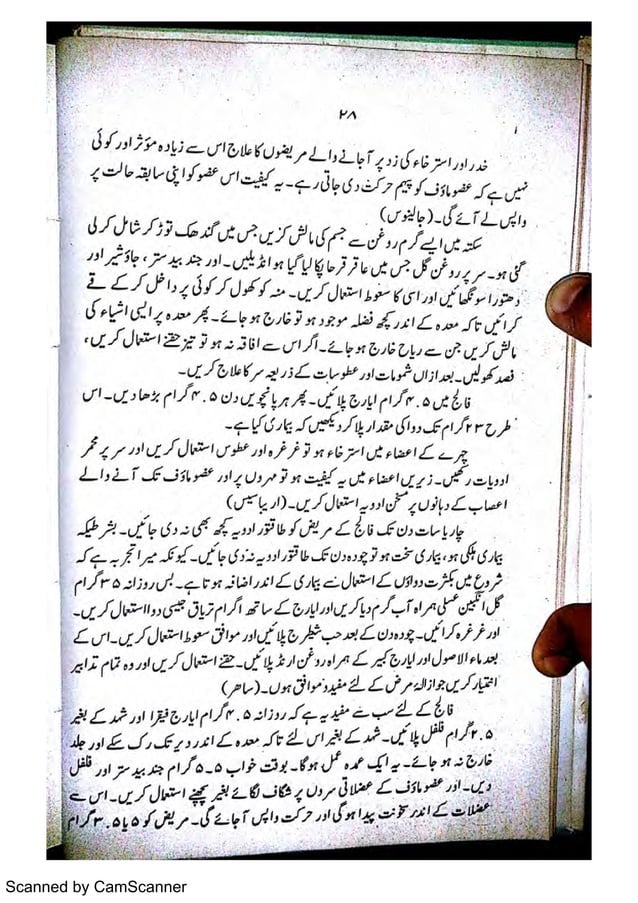 ۲۸
خدر اور استرخاء کی زد پر آجانے والے مریضوں کا علاج اس سے زیادہ مؤثر اور کوئی
نہیں ہے کہ عضو ماؤف کو پیہم حرکت دی جاتی رہے۔ یہ کیفیت اس عضو کو اپنی سابقہ حالت پر
واپس لے آئے گی۔ (جالینوس)
سکتہ میں ایسے گرم روغن سے جسم کی مالش کریں جس میں گندھک توڑ کر شامل کر لی
گئی ہو۔ سر پر روغن گل جس میں عاقر قرحا پکا لیا گیا ہو انڈیلیں۔ اور جند بیدستر، جاؤشیر اور
دھتورا سونگھائیں اور اسی کا سعوط استعمال کریں۔ منہ کو کھول کر کوئی پر داخل کر کے قے
کرائیں تاکہ معدہ کے اندر کچھ فضلہ موجود ہو تو خارج ہو جائے۔ پھر معدہ پر ایسی اشیاء کی
مالش کریں جن سے ریاح خارج ہو جائے۔ اگر اس سے افاقہ نہ ہو تو تیز حقنے استعمال کریں،
فصد کھولیں۔ بعد ازاں شمومات اور عطوسات کے ذریعہ سر کا علاج کریں۔
فالج میں ۴.۵ گرام ایارج پلائیں۔ پھر ہر پانچویں دن ۴.۵ گرام بڑھا دیں۔ اس
طرح ۲۳ گرام تک دوا کی مقدار پلا کر دیکھیں کہ بیماری کیا ہے۔
چہرے کے اعضاء میں استرخاء ہو تو غرغرہ اور عطوس استعمال کریں اور سر پر محمر
ادویات رکھیں۔ زیریں اعضاء میں یہ کیفیت ہو تو مہروں پر اور عضو ماؤف تک آنے والے
اعصاب کے دہانوں پر مسخن ادویہ استعمال کریں۔ (اریباسیس)
چار یا سات دن تک فالج کے مریض کو طاقتور ادویہ کچھ بھی نہ دی جائیں۔ بشرطیکہ
بیماری ہلکی ہو، بیماری سخت ہو تو چودہ دن تک طاقتور ادویہ نہ دی جائیں۔ کیونکہ میرا تجربہ ہے کہ
شروع میں بکثرت دواؤں کے استعمال سے بیماری کے اندر اضافہ ہوتا ہے۔ بس روزانہ ۳۵ گرام
گل انگبین عسلی ہمراہ آب گرم دیا کریں اور ایارج کے ساتھ ۱ گرام تریاق جیسی دوا استعمال کریں۔
اور غرغرہ کرائیں۔ چودہ دن کے بعد حب شیطرج پلائیں اور موافق سعوط استعمال کریں۔ اس کے
بعد ماء الاصول اور ایارج کبیر کے ہمراہ روغن ارنڈ پلائیں۔ حقنے استعمال کریں اور وہ تمام تدابیر
اختیار کریں جو ازالۂ مرض کے لئے مفید و موافق ہوں۔ (ساهر)
فالج کے لئے سب سے مفید یہ ہے کہ روزانہ ۴.۵ گرام ایارج فیقرا اور شہد کے بغیر
۲.۵ گرام فلفل پلائیں۔ شہد کے بغیر اس لئے تاکہ معدہ کے اندر دیر تک رک سکے اور جلد
خارج نہ ہو جائے۔ یہ ایک عمدہ عمل ہوگا۔ بوقت خواب ۵-۵ گرام جند بیدستر اور فلفل
دیں۔ اور عضو ماؤف کے عضلاتی سروں پر شگاف لگائے بغیر پچھنے استعمال کریں۔ اس سے
عضلات کے اندر سخونت پیدا ہوگی اور حرکت واپس آجائے گی۔ مریض کو ۵ یا ۳.۵ گرام
Scanned by CamScanner